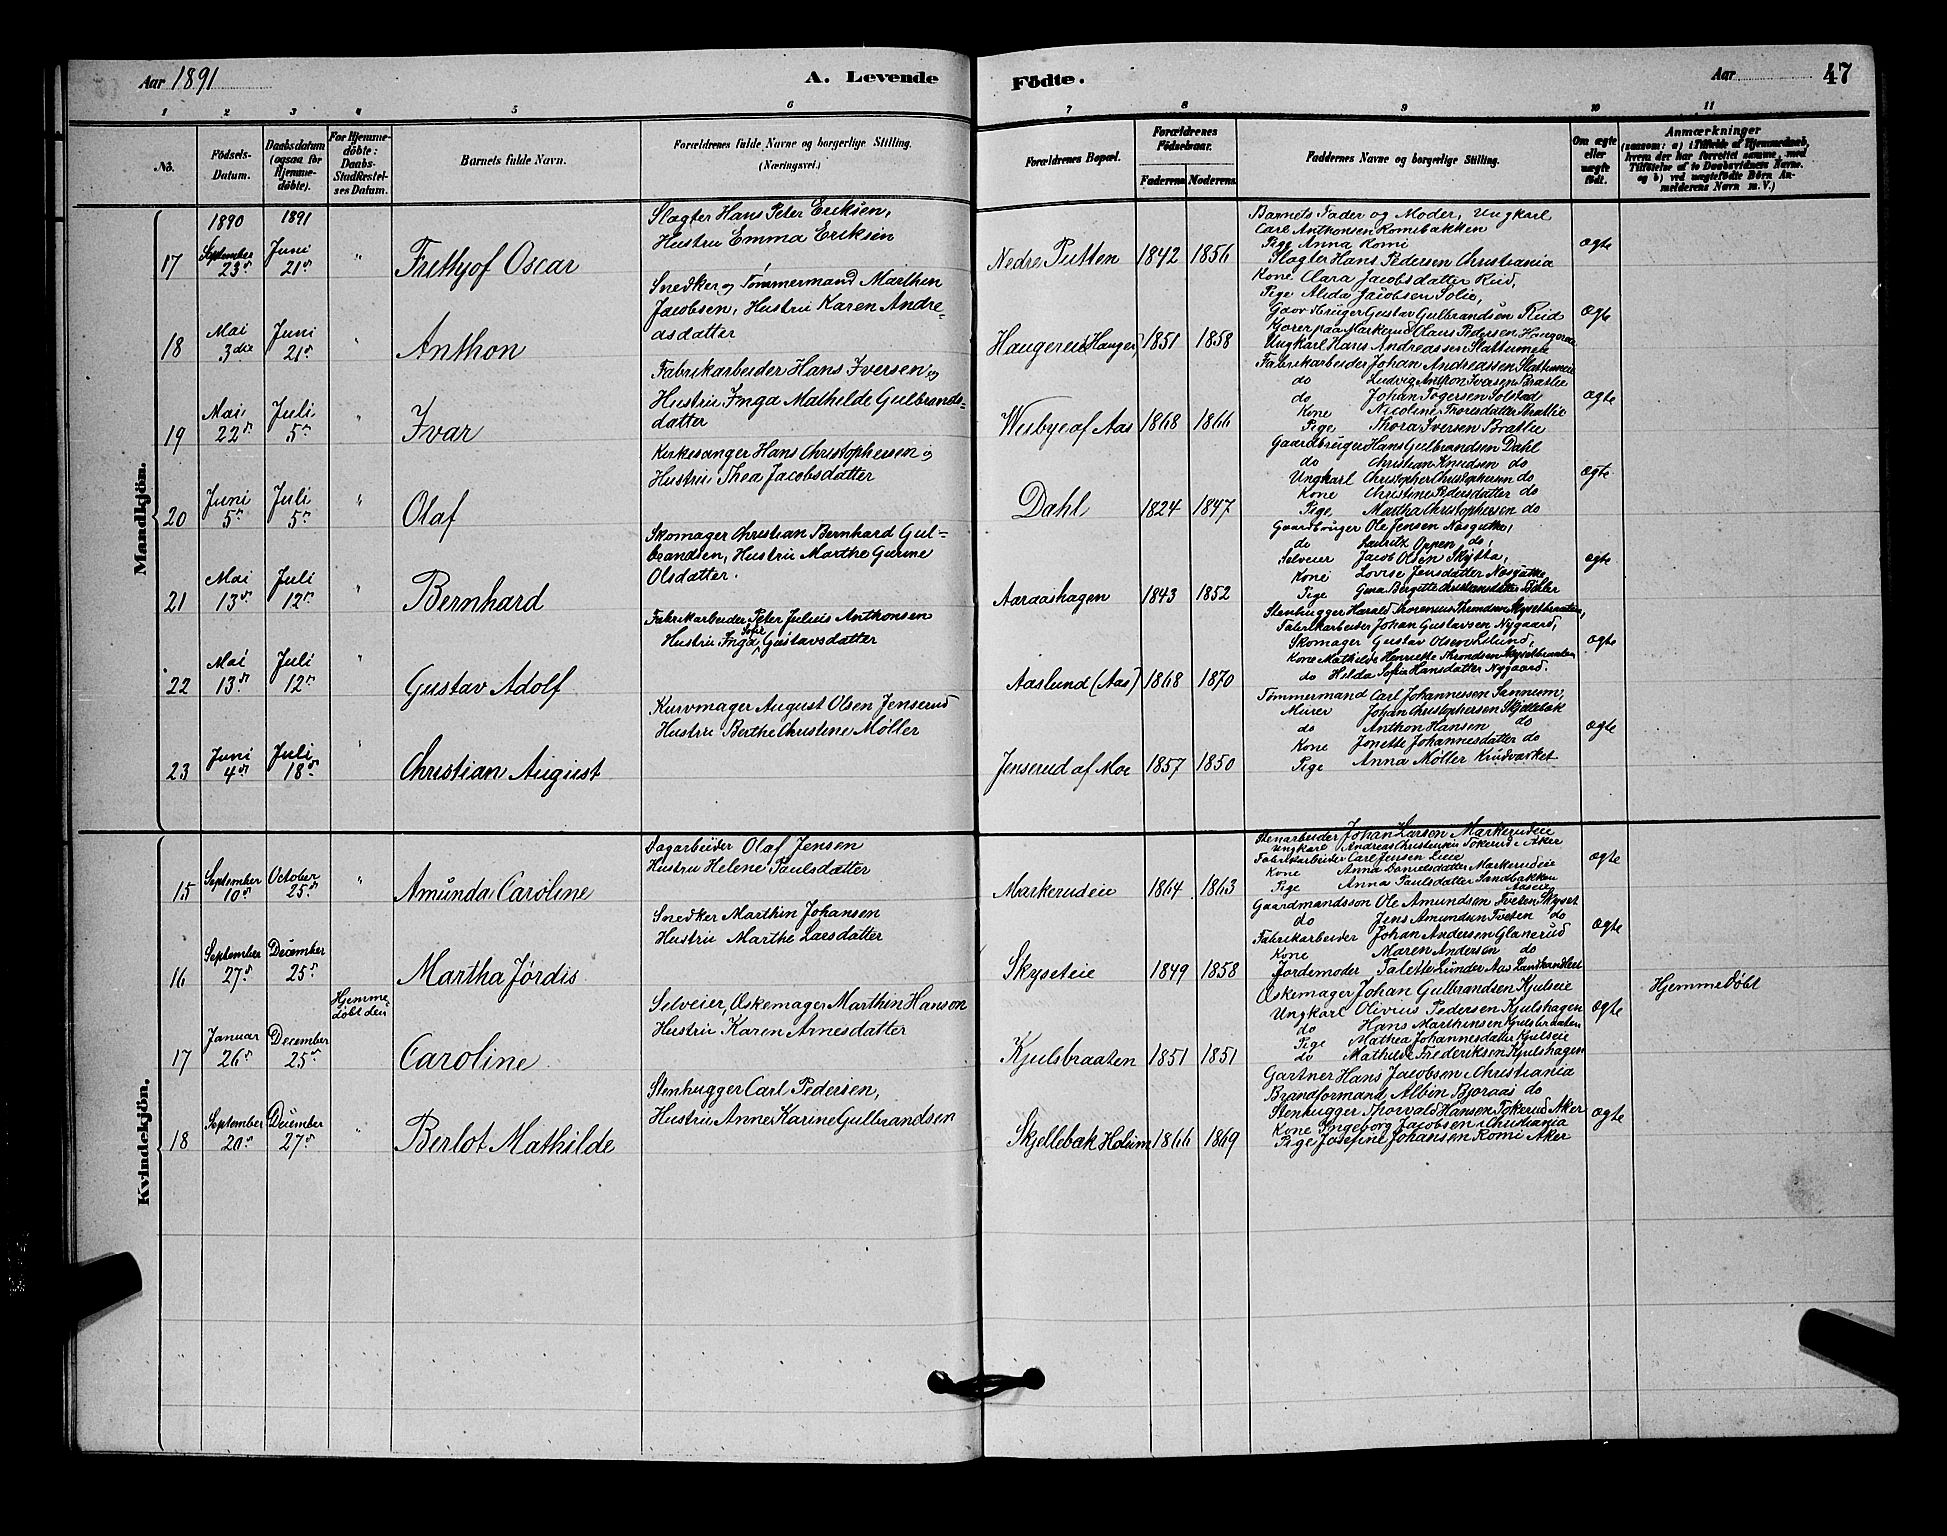 Aar 1891
A. Levende
Födte.
Aar
47
1 2 3 4 5 6 7 8 9 10 11
No.
Födsels-
Datum.
Daabsdatum
(ogsaa for
Hjemme-
döbte).
For Hjemme-
döbte:
Daabs-
Barnets fulde Navn.
Forældrenes fulde Navne og borgerlige Stilling.
(Næringsvei.)
Forældrenes Bopæl.
Forældrenes
Födselsaar.
Faderens Moderens
Faddernes Navne og borgerlige Stilling.
Om ægte
eller
uægte
födt.
Anmærkninger
(saasom: a) i Tilfælde af Hjemmedaab,
hvem der har forrettet samme, med
Tilföielse af to Daabsvidners Navne.
og b) ved uægtefödte Börn An-
melderens Navn m. V.)
Mandkjön.
1890 1891
17 September 23 Juni 21 " Frithjof Oscar
Slagter Hans Peter Eriksen,
Hustru Emma Eriksen
Nedre Putten 1842 1856
Barnets Fader og Moder, Ungkarl
Carl Anthonsen Romibakken
Pige Anna Romi
Slagter Hans Pedersen Christiania
ægte
18 Mai 3die Juni 21 " Anthon
Snedker og Tömmermand Marthin
Jacobsen, Hustru Karen Andre-
asdatter
Haugereie (Hauger) 1851 1858
Kone Clara Jacobsdatter Rud,
Pige Alida Jacobsen Solie,
Gaardbruger Gustav Gulbrandsen Rud
Kjører paa Markerud Olaus Pedersen
Ungkarl Hans Andreassen Slattumeie
ægte
19 Mai 22 Juli 5 " Ivar
Fabrikarbeider Hans Iversen og
Hustru Inga Mathilde Gulbrands-
datter
Wesbye af Aas 1868 1866
Fabrikarbeider Johan Andreassen Slattumeie
do Ludvig Anthon Iversen Bratlie
do Johan Togersen Solstad
Kone Nicoline Thoresdatter Bratlie
Pige Thora Iversen Bratlie
ægte
20 Juni 5 Juli 5 " Olaf
Kirkesanger Hans Christophersen og
Hustru Thea Jacobsdatter
Dahl 1824 1847
Gaardbruger Hans Gulbrandsen Dahl
do Christian Knudsen do
Ungkarl Christopher Christophersen do
Kone Christine Pedersdatter do
Pige Martha Christophersen do
ægte
21 Mai 13 Juli 12 " Bernhard
Skomager Christian Bernhard Gul-
brandsen, Hustru Marthe Gurine
Olsdatter.
Aaraashagen 1843 1852
Gaardbruger Ole Jensen Nøsgutha,
do Lauritz Oppen do,
Selveier Jacob Olsen Skytta,
Kone Lovise Jensdatter
Pige Gina Birgitte
ægte
22 Mai 13 Juli 12 " Gustav Adolf
Fabrikarbeider Peter Julius Anthonsen
Hustru Inga Sofie Gustavsdatter
Aaslund (Aas) 1868 1870
Stenhugger Harald
Fabrikarbeider Johan Gustavsen Nygaard,
Skomager Gustav Olsen Lilund,
Kone Mathilde Henriette
do Hilda Sofia Hansdatter Nygaard.
ægte
23 Juni 4 Juli 18 " Christian August
Kurvmager August Olsen Jenserud
Hustru Berthe Christine Møller
Jenserud af Moe 1857 1850
Tømmermand Carl Johannesen Sannum,
Murer Johan Christophersen Skjellebæk
do Anthon Hansen do
Kone Jonette Johannesdatter do
Pige Anna Møller Krudværket
ægte
Kvindekjön.
15 September 10 October 25 " Amunda Caroline
Dagarbeider Olaf Jensen
Hustru Helene Paulsdatter
Markerudeie 1864 1863
Stenarbeider Johan Larsen Markerudeie
Ungkarl Andreas Christensen Tokerud i Aker
Fabrikarbeider Carl Jensen Lieie
Kone Anna Danielsdatter Markerudeie
Pige Anna Paulsdatter Sandbakken
Aaseie
ægte
16 September 27 December 25 Martha Jørdis
Snedker Marthin Johansen
Hustru Marthe Larsdatter
Skyseteie 1849 1858
Gaardmandssøn Ole Amundsen Tveten Skyset
do Jens Amundsen Tveten do
Fabrikarbeider Johan Andersen Glanerud
Kone Maren Andersen do
Jordemoder Talette Lunder Aas Landhandleri
ægte
17 Januar 26 December 25
Hjemme
døbt den
Caroline
Selveier, Æskemager Marthin Hansen
Hustru Karen Arnesdatter
Kjulsbraaten 1851 1851
Æskemager Johan Gulbrandsen Kjulseie
Ungkarl Olivius Pedersen Kjulshagen
do Hans Marthinsen Kjulsbraaten
Pige Mathea Johannesdatter Kjulseie
do Mathilde Frederiksen Kjulshagen
ægte
Hjemmedøbt
18 September 20 December 27 " Berlot Mathilde
Stenhugger Carl Pedersen,
Hustru Anne Karine Gulbrandsen
Skjellebæk Holum 1866 1869
Gartner Hans Jacobsen Christiania
Brandformand Albin Bjoraas do
Stenhugger Thorvald Hansen Tokerud Aker
Kone Ingeborg Jacobsen Christiania
Pige Josefine Johansen Romi Aker
ægte